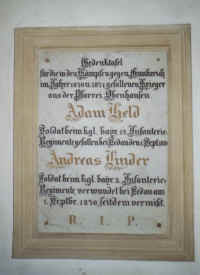 Gedenktafel
für die in den Kämpfen gegen Frankreich
im Jahre 1870 u. 1871 gefallenen Krieger
aus der Pfarrei Obenhausen
Adam Held
Soldat beim kgl. bayr. 12. Infanterie-
Regimente gefallen bei Sedan den 1. Septbr.
Andreas Linder
Soldat beim kgl. bayr. 3. Infanterie-
Regimente verwundet bei Sedan am
1. Septbr. 1870, seitdem vermißt.
R. I. P.